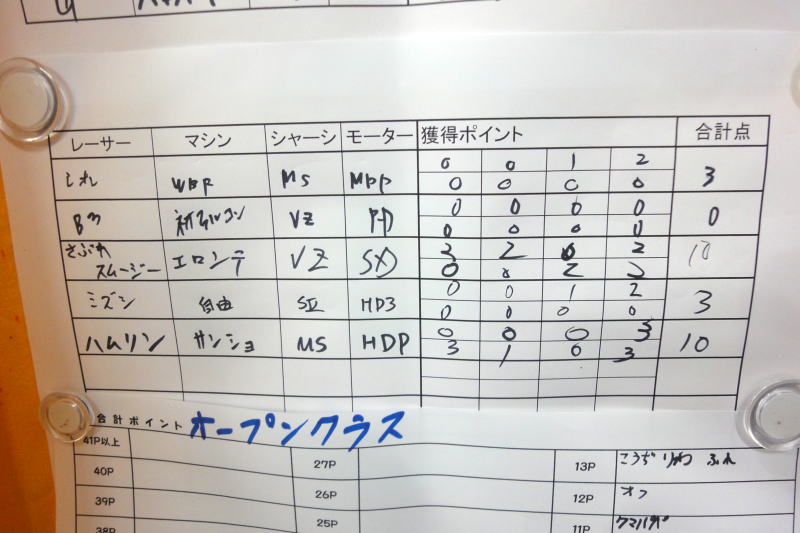 レーサー マシン シャーシ モーター 獲得ポイント 合計点
0 0 1 2
MS 3
0 0 0 0
0 0 0 0
VZ PD 0
0 0 0 0
さぶれ 3 2 0 2
スムージー エロンテ VZ SD 10
0 0 2 2
0 0 1 2
ミズシ 自由 SⅡ HD3 3
0 0 0 0
0 0 0 3
ハムリン サンショ MS HDP 10
3 1 0 3
合計ポイント オープンクラス
41P以上
40P 27P 13P
39P 26P 12P オフ
38P 25P 11P